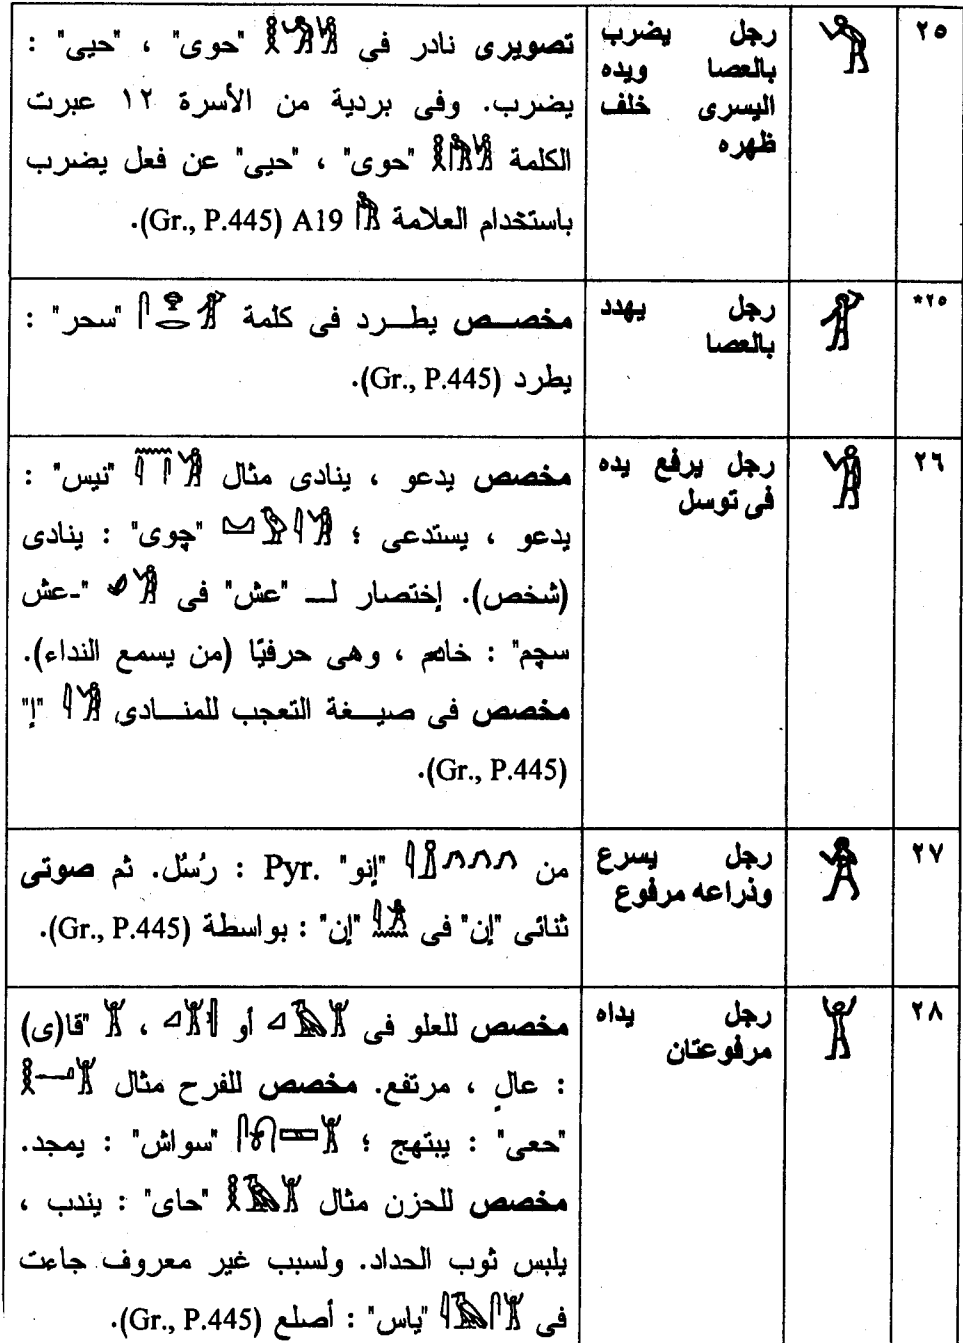 ٢٥
رجل يضرب
بالعصا ويده
اليسرى خلف
ظهره
تصويرى نادر فى "حوى" ، "حيى" :
يضرب. وفى بردية من الأسرة ١٢ عبرت
الكلمة "حوى" ، "حيى" عن فعل يضرب
باستخدام العلامة A19 (Gr., P.445).
٢٥*
رجل يهدد
بالعصا
مخصص يطرد فى كلمة "سحر" :
يطرد (Gr., P.445).
٢٦
رجل يرفع يده
فى توسل
مخصص يدعو ، ينادى مثال "نيس" :
يدعو ، يستدعى ؛ "چوى" : ينادى
(شخص). إختصار لـ "عش" فى "ـعش
سچم" : خادم ، وهى حرفيًا (من يسمع النداء).
مخصص فى صيغة التعجب للمنادى "إ"
(Gr., P.445).
٢٧
رجل يسرع
وذراعه مرفوع
من "إنو" Pyr. : رُسُل. ثم صوتى
ثنائى "إن" فى "إن" : بواسطة (Gr., P.445).
٢٨
رجل يداه
مرفوعتان
مخصص للعلو فى أو ، "قا(ى)
: عالٍ ، مرتفع. مخصص للفرح مثال
"حعى" : يبتهج ؛ "سواش" : يمجد.
مخصص للحزن مثال "حاى" : يندب ،
يلبس ثوب الحداد. ولسبب غير معروف جاءت
فى "ياس" : أصلع (Gr., P.445).